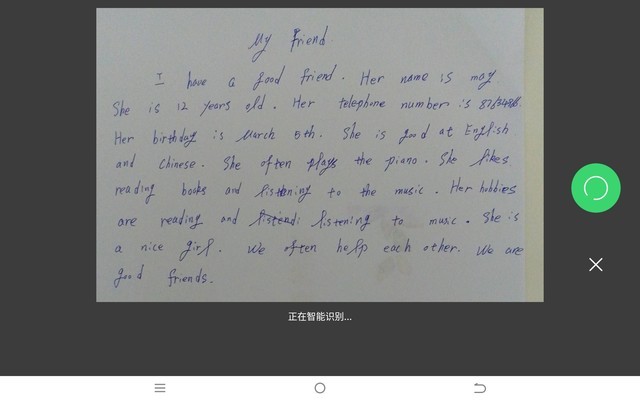 My friend.
I have a good friend. Her name is may
She is 12 years old. Her telephone number is
Her birthday is March 5th. She is good at English
and Chinese. She often plays the piano. She likes
reading books and listening to the music. Her hobbies
are reading and listendi listening to music. She is
a nice girl. We often help each other. We are
good friends.
正在智能识别...